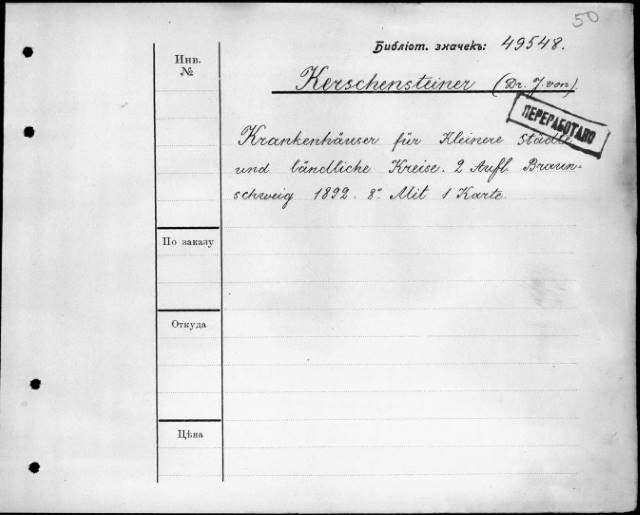 50
Библіот. значекъ: 49548.
Инв.
№
Kerschensteiner (Dr. J. von).
ПЕРЕРАБОТАНО
Krankenhäuser für Kleinere Städte
und ländliche Kreise. 2 Aufl. Braun-
schweig 1892. 8° Mit 1 Karte.
По заказу
Откуда
Цѣна